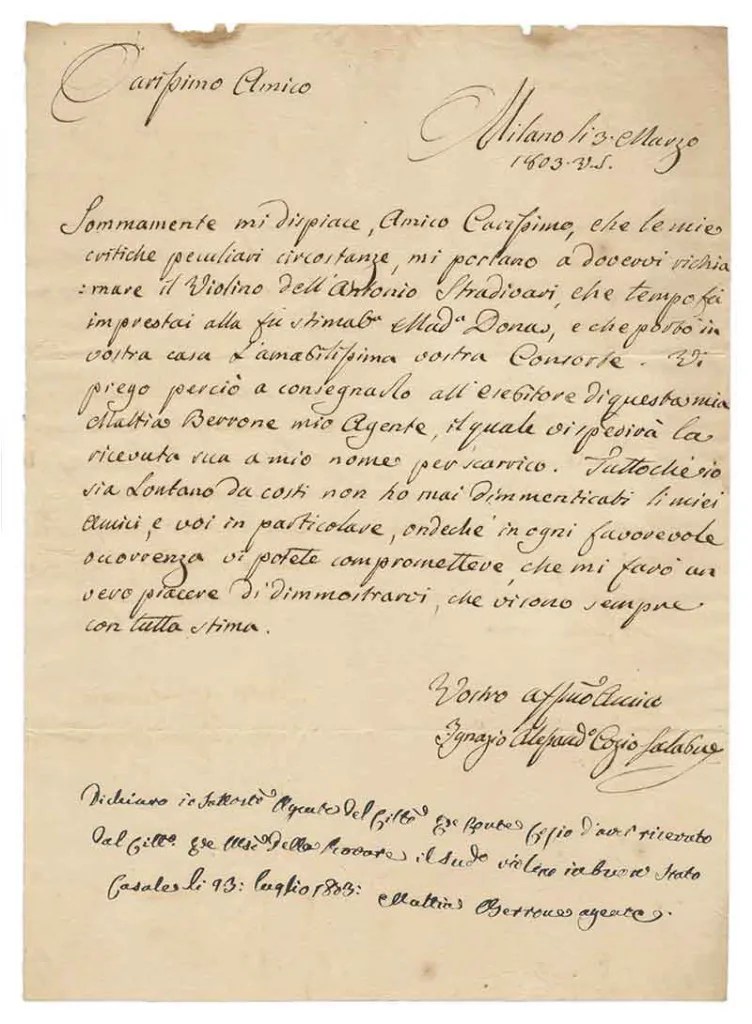 Carissimo Amico
Milano li 3. Marzo
1803. V. S.
Sommamente mi dispiace, Amico Carissimo, che le mie
critiche peculiari circostanze, mi portano a dovervi richia
:mare il Violino dell'Antonio Stradivari, che tempo fà
imprestai alla fù stimab.ª Mad.ª Dona, e che portò in
vostra casa L'amabilissima vostra Consorte. Vi
prego perciò a consegnarlo all'esebitore di questa mia
Mattia Berrone mio Agente, il quale vi spedirà la
ricevuta sua a mio nome per scarrico. Tuttochè io
sia Lontano da costi non ho mai dimmenticati li miei
Amici, e voi in particolare, ondechè in ogni favorevole
occorrenza vi potete compromettere, che mi farò un
vero piacere di dimmostrarvi, che vi sono sempre
con tutta stima.
Vostro affmo Amico
Ignazio Alessand.º Cozio Salabue
Dichiaro io Sottosto Agente del Citt.º Conte Cozio d'aver ricevuto
dal Citt.º della Rovare il sudo violino in buon stato
Casale li 23: luglio 1803: Mattia Berrone agente.